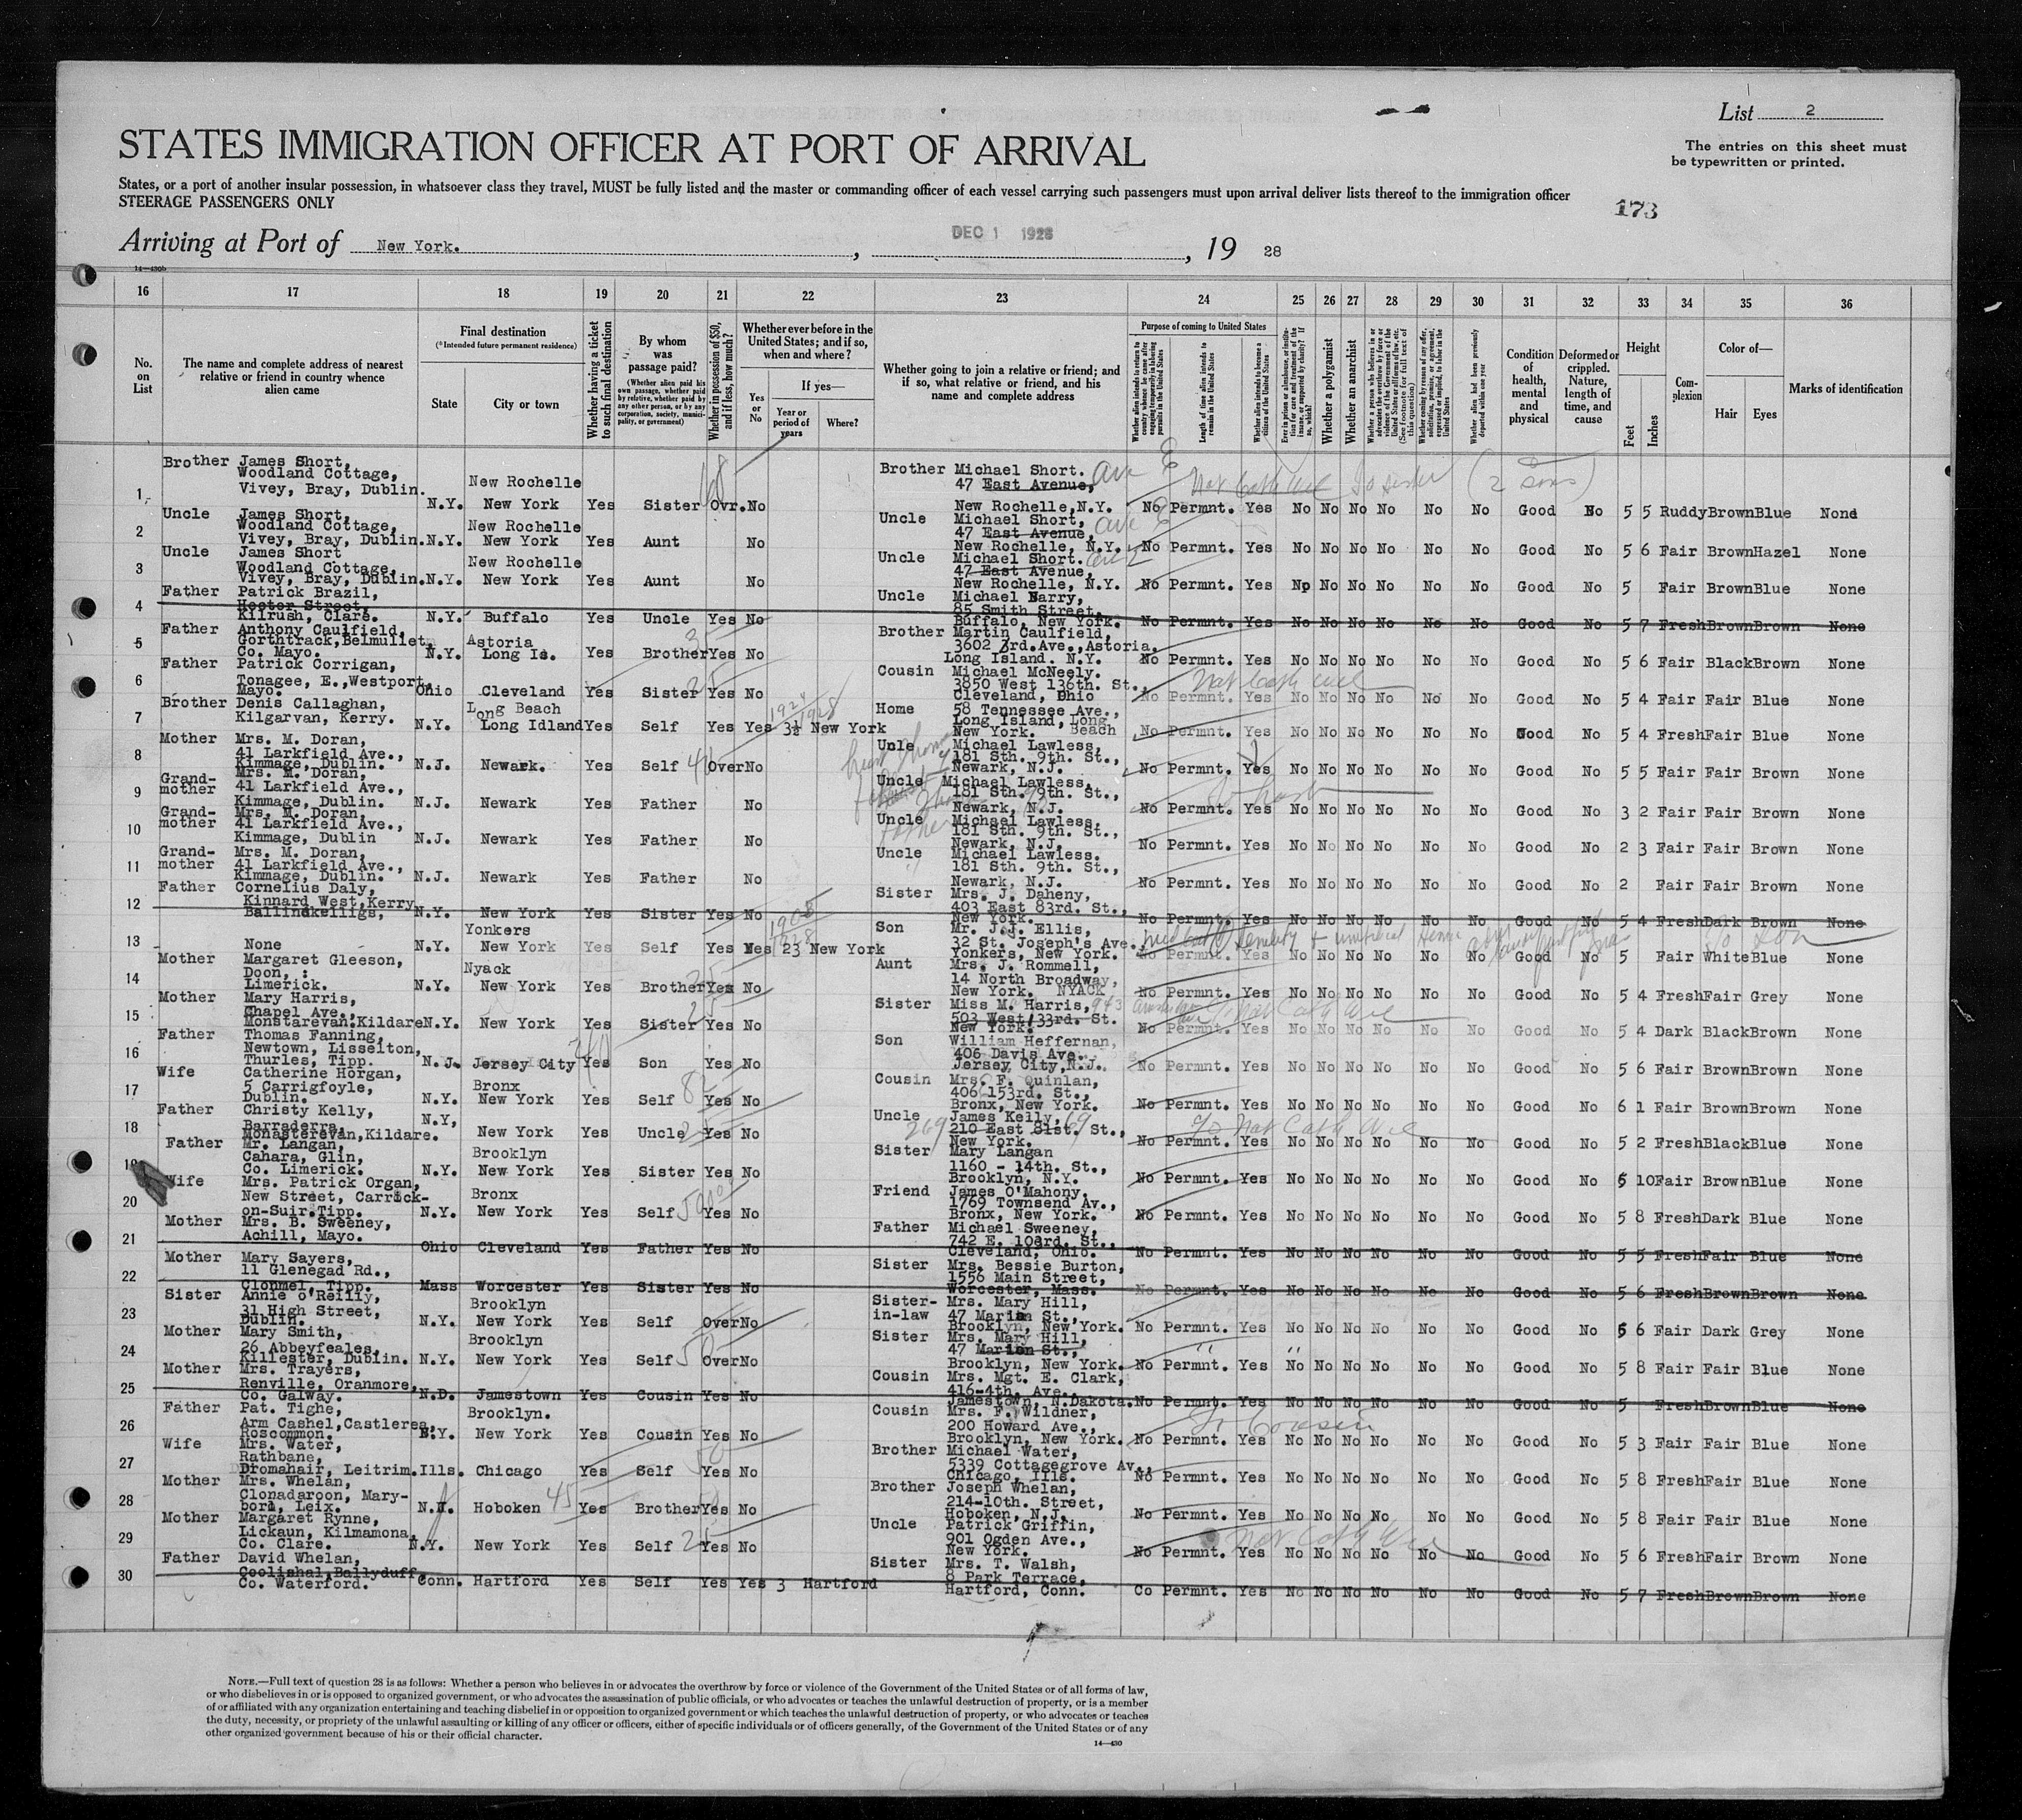 List 2
STATES IMMIGRATION OFFICER AT PORT OF ARRIVAL
The entries on this sheet must
be typewritten or printed.
States, or a port of another insular possession, in whatsoever class they travel, MUST be fully listed and the master or commanding officer of each vessel carrying such passengers must upon arrival deliver lists thereof to the immigration officer
STEERAGE PASSENGERS ONLY
173
Arriving at Port of New York. , DEC 1 1928 , 19 28
14—430b
16 17 18 19 20 21 22 23 24 25 26 27 28 29 30 31 32 33 34 35 36
No. on List
The name and complete address of nearest relative or friend in country whence alien came
Final destination
(*Intended future permanent residence)
State
City or town
Whether having a ticket to such final destination
By whom was passage paid?
(Whether alien paid his own passage, whether paid by relative, whether paid by any other person, or by any corporation, society, municipality, or government)
Whether in possession of $50, and if less, how much?
Whether ever before in the United States; and if so, when and where?
Yes or No
If yes—
Year or period of years
Where?
Whether going to join a relative or friend; and if so, what relative or friend, and his name and complete address
Purpose of coming to United States
Whether alien intends to return to country whence he came after engaging temporarily in laboring pursuits in the United States
Length of time alien intends to remain in the United States
Whether alien intends to become a citizen of the United States
Ever in prison or almshouse, or institution for care and treatment of the insane, or supported by charity? If so, which?
Whether a polygamist
Whether an anarchist
Whether a person who believes in or advocates the overthrow by force or violence of the Government of the United States or all forms of law, etc. (See footnote for full text of this question)
Whether coming by reason of any offer, solicitation, promise, or agreement, expressed or implied, to labor in the United States
Whether alien had been previously deported within one year
Condition of health, mental and physical
Deformed or crippled. Nature, length of time, and cause
Height
Feet
Inches
Complexion
Color of—
Hair
Eyes
Marks of identification
1 Brother James Short, Woodland Cottage, Vivey, Bray, Dublin. N.Y. New Rochelle New York Yes Sister Ovr. No Brother Michael Short. 47 East Avenue, New Rochelle, N.Y. No Permnt. Yes No No No No No No Good No 5 5 Ruddy Brown Blue None
2 Uncle James Short, Woodland Cottage, Vivey, Bray, Dublin. N.Y. New Rochelle New York Yes Aunt No Uncle Michael Short, 47 East Avenue, New Rochelle, N.Y. No Permnt. Yes No No No No No No Good No 5 6 Fair Brown Hazel None
3 Uncle James Short Woodland Cottage, Vivey, Bray, Dublin. N.Y. New Rochelle New York Yes Aunt No Uncle Michael Short. 47 East Avenue, New Rochelle, N.Y. No Permnt. Yes No No No No No No Good No 5 Fair Brown Blue None
4 Father Patrick Brazil, Hector Street, Kilrush, Clare. N.Y. Buffalo Yes Uncle Yes No Uncle Michael Barry, 85 Smith Street, Buffalo, New York. No Permnt. Yes No No No No No No Good No 5 7 Fresh Brown Brown None
5 Father Anthony Caulfield, Gorthtrack, Belmullet, Co. Mayo. N.Y. Astoria Long Is. Yes Brother Yes No Brother Martin Caulfield, 3602 3rd. Ave., Astoria. Long Island. N.Y. No Permnt. Yes No No No No No No Good No 5 6 Fair Black Brown None
6 Father Patrick Corrigan, Tonagee, E., Westport, Mayo. Ohio Cleveland Yes Sister Yes No Cousin Michael McNeely. 3850 West 136th. St., Cleveland, Ohio No Permnt. Yes No No No No No No Good No 5 4 Fair Fair Blue None
7 Brother Denis Callaghan, Kilgarvan, Kerry. N.Y. Long Beach Long Idland Yes Self Yes Yes 3½ New York Home 58 Tennessee Ave., Long Island, Long Beach New York. No Permnt. Yes No No No No No No Good No 5 4 Fresh Fair Blue None
8 Mother Mrs. M. Doran, 41 Larkfield Ave., Kimmage, Dublin. N.J. Newark. Yes Self Over No Uncle Michael Lawless, 181 Sth. 9th. St., Newark, N.J. No Permnt. Yes No No No No No No Good No 5 5 Fair Fair Brown None
9 Grand-mother Mrs. M. Doran, 41 Larkfield Ave., Kimmage, Dublin. N.J. Newark Yes Father No Uncle Michael Lawless, 181 Sth. 9th. St., Newark, N.J. No Permnt. Yes No No No No No No Good No 3 2 Fair Fair Brown None
10 Grand-mother Mrs. M. Doran, 41 Larkfield Ave., Kimmage, Dublin N.J. Newark Yes Father No Uncle Michael Lawless, 181 Sth. 9th. St., Newark, N.J. No Permnt. Yes No No No No No No Good No 2 3 Fair Fair Brown None
11 Grand-mother Mrs. M. Doran, 41 Larkfield Ave., Kimmage, Dublin. N.J. Newark Yes Father No Uncle Michael Lawless. 181 Sth. 9th. St., Newark, N.J. No Permnt. Yes No No No No No No Good No 2 Fair Fair Brown None
12 Father Cornelius Daly, Kinnard West, Kerry Ballinskelligs, N.Y. New York Yes Sister Yes No Sister Mrs. J. Daheny, 403 East 83rd. St., New York. No Permnt. Yes No No No No No No Good No 5 4 Fresh Dark Brown None
13 None N.Y. Yonkers New York Yes Self Yes Yes 23 New York 1905 1928 Son Mr. J.J. Ellis, 32 St. Joseph's Ave., Yonkers, New York. No Permnt. Yes No No No No No Good 5 Fair White Blue None
14 Mother Margaret Gleeson, Doon, : Limerick. N.Y. Nyack New York Yes Brother Yes No Aunt Mrs. J. Rommell, 14 North Broadway, New York. NYACK No Permnt. Yes No No No No No No Good No 5 4 Fresh Fair Grey None
15 Mother Mary Harris, Chapel Ave., Monstarevan. Kildare N.Y. New York Yes Sister Yes No Sister Miss M. Harris, 503 West 33rd. St. New York. No Permnt. Yes No No No No No No Good No 5 4 Dark Black Brown None
16 Father Thomas Fanning, Newtown, Lisselton, Thurles, Tipp. N.J. Jersey City Yes Son Yes No Son William Heffernan, 406 Davis Ave. Jersey City, N.J. No Permnt. Yes No No No No No No Good No 5 6 Fair Brown Brown None
17 Wife Catherine Horgan, 5 Carrigfoyle, Dublin. N.Y. Bronx New York Yes Self Yes No Cousin Mrs. F. Quinlan, 406 153rd. St., Bronx, New York. No Permnt. Yes No No No No No No Good No 6 1 Fair Brown Brown None
18 Father Christy Kelly, Barraderra, Monasterevan, Kildare. N.Y, New York Yes Uncle Yes No Uncle James Kelly, 210 East 81st. St., 269 69 New York. No Permnt. Yes No No No No No No Good No 5 2 Fresh Black Blue None
19 Father Mr. Langan, Cahara, Glin, Co. Limerick. N.Y. Brooklyn New York Yes Sister Yes No Sister Mary Langan 1160 - 14th. St., Brooklyn, N.Y. No Permnt. Yes No No No No No No Good No 5 10 Fair Brown Blue None
20 Wife Mrs. Patrick Organ, New Street, Carrick-on-Suir. Tipp. N.Y. Bronx New York Yes Self Yes No Friend James O'Mahony, 1769 Townsend Av., Bronx, New York. No Permnt. Yes No No No No No No Good No 5 8 Fresh Dark Blue None
21 Mother Mrs. B. Sweeney, Achill, Mayo. Ohio Cleveland Yes Father Yes No Father Michael Sweeney, 742 E. 103rd. St., Cleveland, Ohio. No Permnt. Yes No No No No No No Good No 5 5 Fresh Fair Blue None
22 Mother Mary Sayers, 11 Glenegad Rd., Clonmel, Tipp. Mass Worcester Yes Sister Yes No Sister Mrs. Bessie Burton, 1556 Main Street, Worcester, Mass. No Permnt. Yes No No No No No No Good No 5 6 Fresh Brown Brown None
23 Sister Annie O'Reilly, 31 High Street, Dublin. N.Y. Brooklyn New York Yes Self Over No Sister-in-law Mrs. Mary Hill, 47 Marion St., Brooklyn, New York. No Permnt. Yes No No No No No No Good No 5 6 Fair Dark Grey None
24 Mother Mary Smith, 26 Abbeyfeales, Killester, Dublin. N.Y. Brooklyn New York Yes Self Over No Sister Mrs. Mary Hill, 47 Marion St., Brooklyn, New York. No Permnt. Yes No No No No No No Good No 5 8 Fair Fair Blue None
25 Mother Mrs. Trayers, Renville, Oranmore, Co. Galway. N.D. Jamestown Yes Cousin Yes No Cousin Mrs. Mgt. E. Clark, 416-4th. Ave., Jamestown, N.Dakota. No Permnt. Yes No No No No No No Good No 5 Fresh Brown Blue None
26 Father Pat. Tighe, Arm Cashel, Castlerea, Roscommon. N.Y. Brooklyn. New York Yes Cousin Yes No Cousin Mrs. F. Wildner, 200 Howard Ave., Brooklyn, New York. To Cousin No Permnt. Yes No No No No No No Good No 5 3 Fair Fair Blue None
27 Wife Mrs. Water, Rathbane, Dromahair, Leitrim. Ills. Chicago Yes Self Yes No Brother Michael Water, 5339 Cottagegrove Av., Chicago, Ills. No Permnt. Yes No No No No No No Good No 5 8 Fresh Fair Blue None
28 Mother Mrs. Whelan, Clonadaroon, Mary-boro, Leix. N.J. Hoboken 45 Yes Brother Yes No Brother Joseph Whelan, 214-10th. Street, Hoboken, N.J. No Permnt. Yes No No No No No No Good No 5 8 Fair Fair Blue None
29 Mother Margaret Rynne, Lickaun, Kilmamona, Co. Clare. N.Y. New York Yes Self 25 Yes No Uncle Patrick Griffin, 901 Ogden Ave., New York. No Permnt. Yes No No No No No No Good No 5 6 Fresh Fair Brown None
30 Father David Whelan, Coolishal, Ballyduff, Co. Waterford. Conn. Hartford Yes Self Yes Yes 3 Hartford Sister Mrs. T. Walsh, 8 Park Terrace, Hartford, Conn. Co Permnt. Yes No No No No No No Good No 5 7 Fresh Brown Brown None
NOTE.—Full text of question 28 is as follows: Whether a person who believes in or advocates the overthrow by force or violence of the Government of the United States or of all forms of law,
or who disbelieves in or is opposed to organized government, or who advocates the assassination of public officials, or who advocates or teaches the unlawful destruction of property, or is a member
of or affiliated with any organization entertaining and teaching disbelief in or opposition to organized government or which teaches the unlawful destruction of property, or who advocates or teaches
the duty, necessity, or propriety of the unlawful assaulting or killing of any officer or officers, either of specific individuals or of officers generally, of the Government of the United States or of any
other organized government because of his or their official character.
14—430